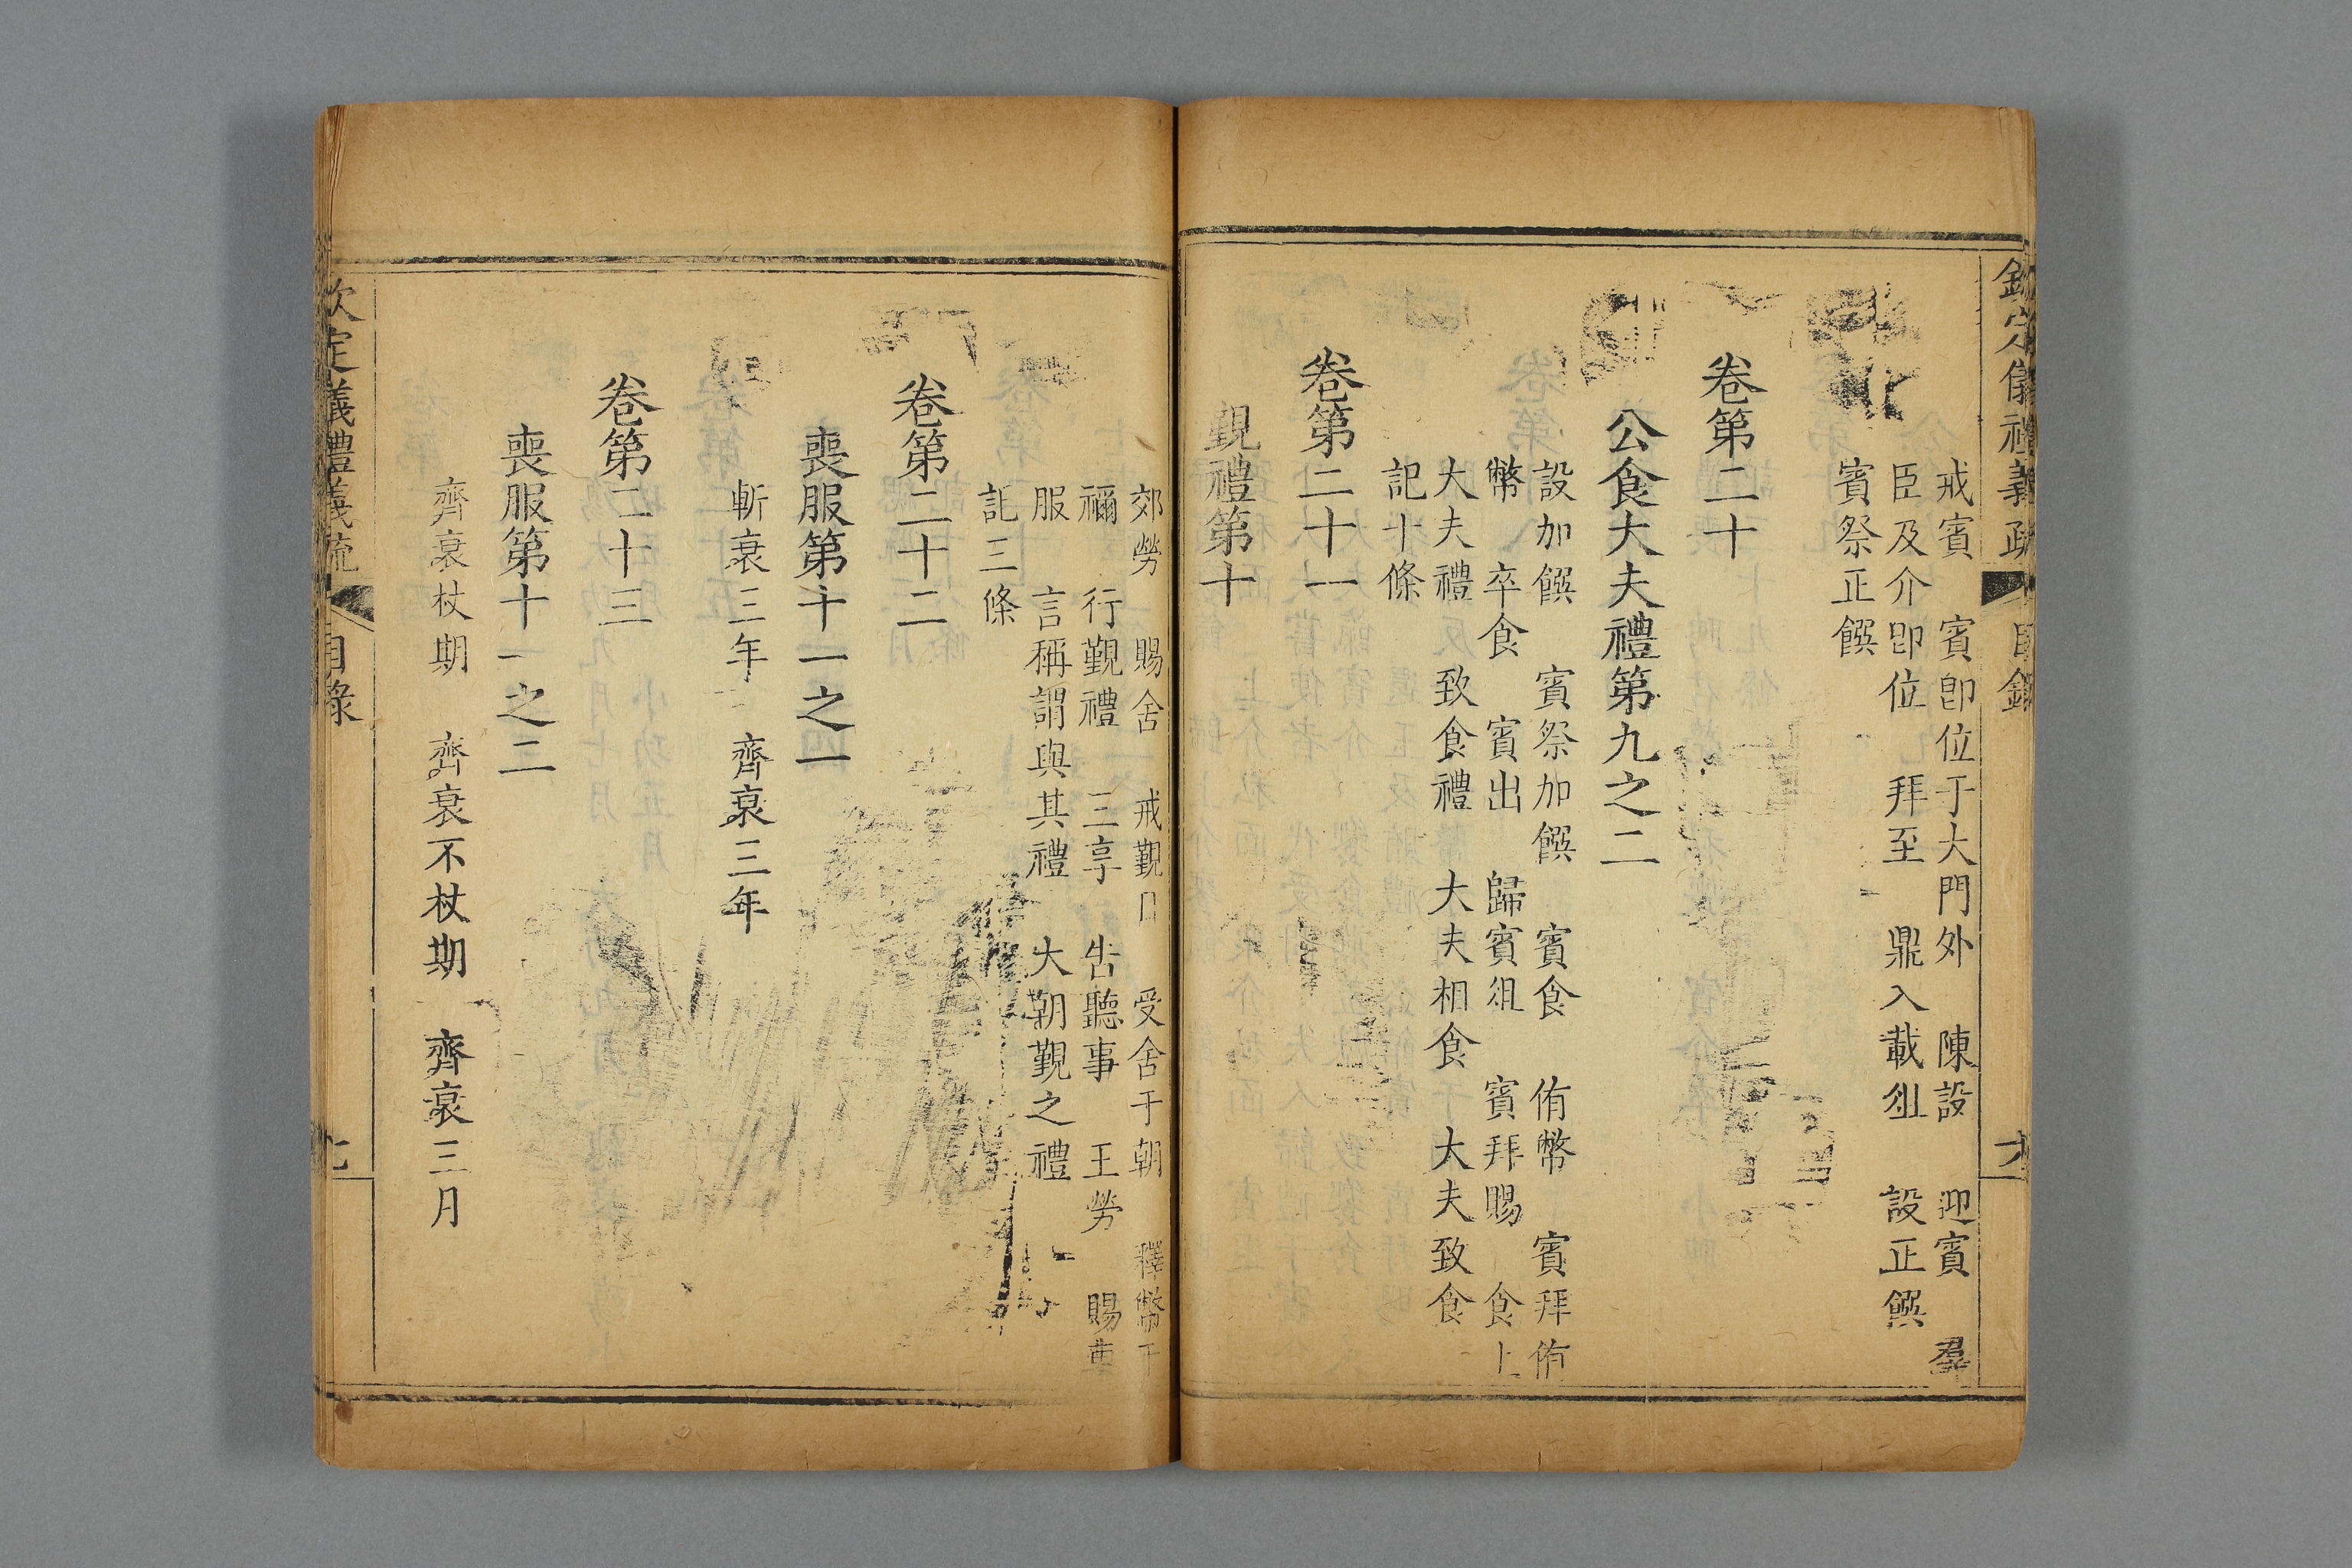 欽定儀禮義疏 目錄 六
戒賓 賓卽位于大門外 陳設 迎賓 羣
臣及介卽位 拜至 鼎入載俎 設正饌
賓祭正饌
卷第二十
公食大夫禮第九之二
設加饌 賓祭加饌 賓食 侑幣 賓拜侑
幣 卒食 賓出 歸賓俎 賓拜賜 食上
大夫禮 致食禮 大夫相食 大夫致食
記十條
卷第二十一
覲禮第十
郊勞 賜舍 戒覲日 受舍于朝 釋幣于
禰 行覲禮 三享 告聽事 王勞 賜車
服 言稱謂與其禮 大朝覲之禮
記三條
卷第二十二
喪服第十一之一
斬衰三年 齊衰三年
卷第二十三
喪服第十一之二
齊衰杖期 齊衰不杖期 齊衰三月
欽定義禮義疏 目錄 七